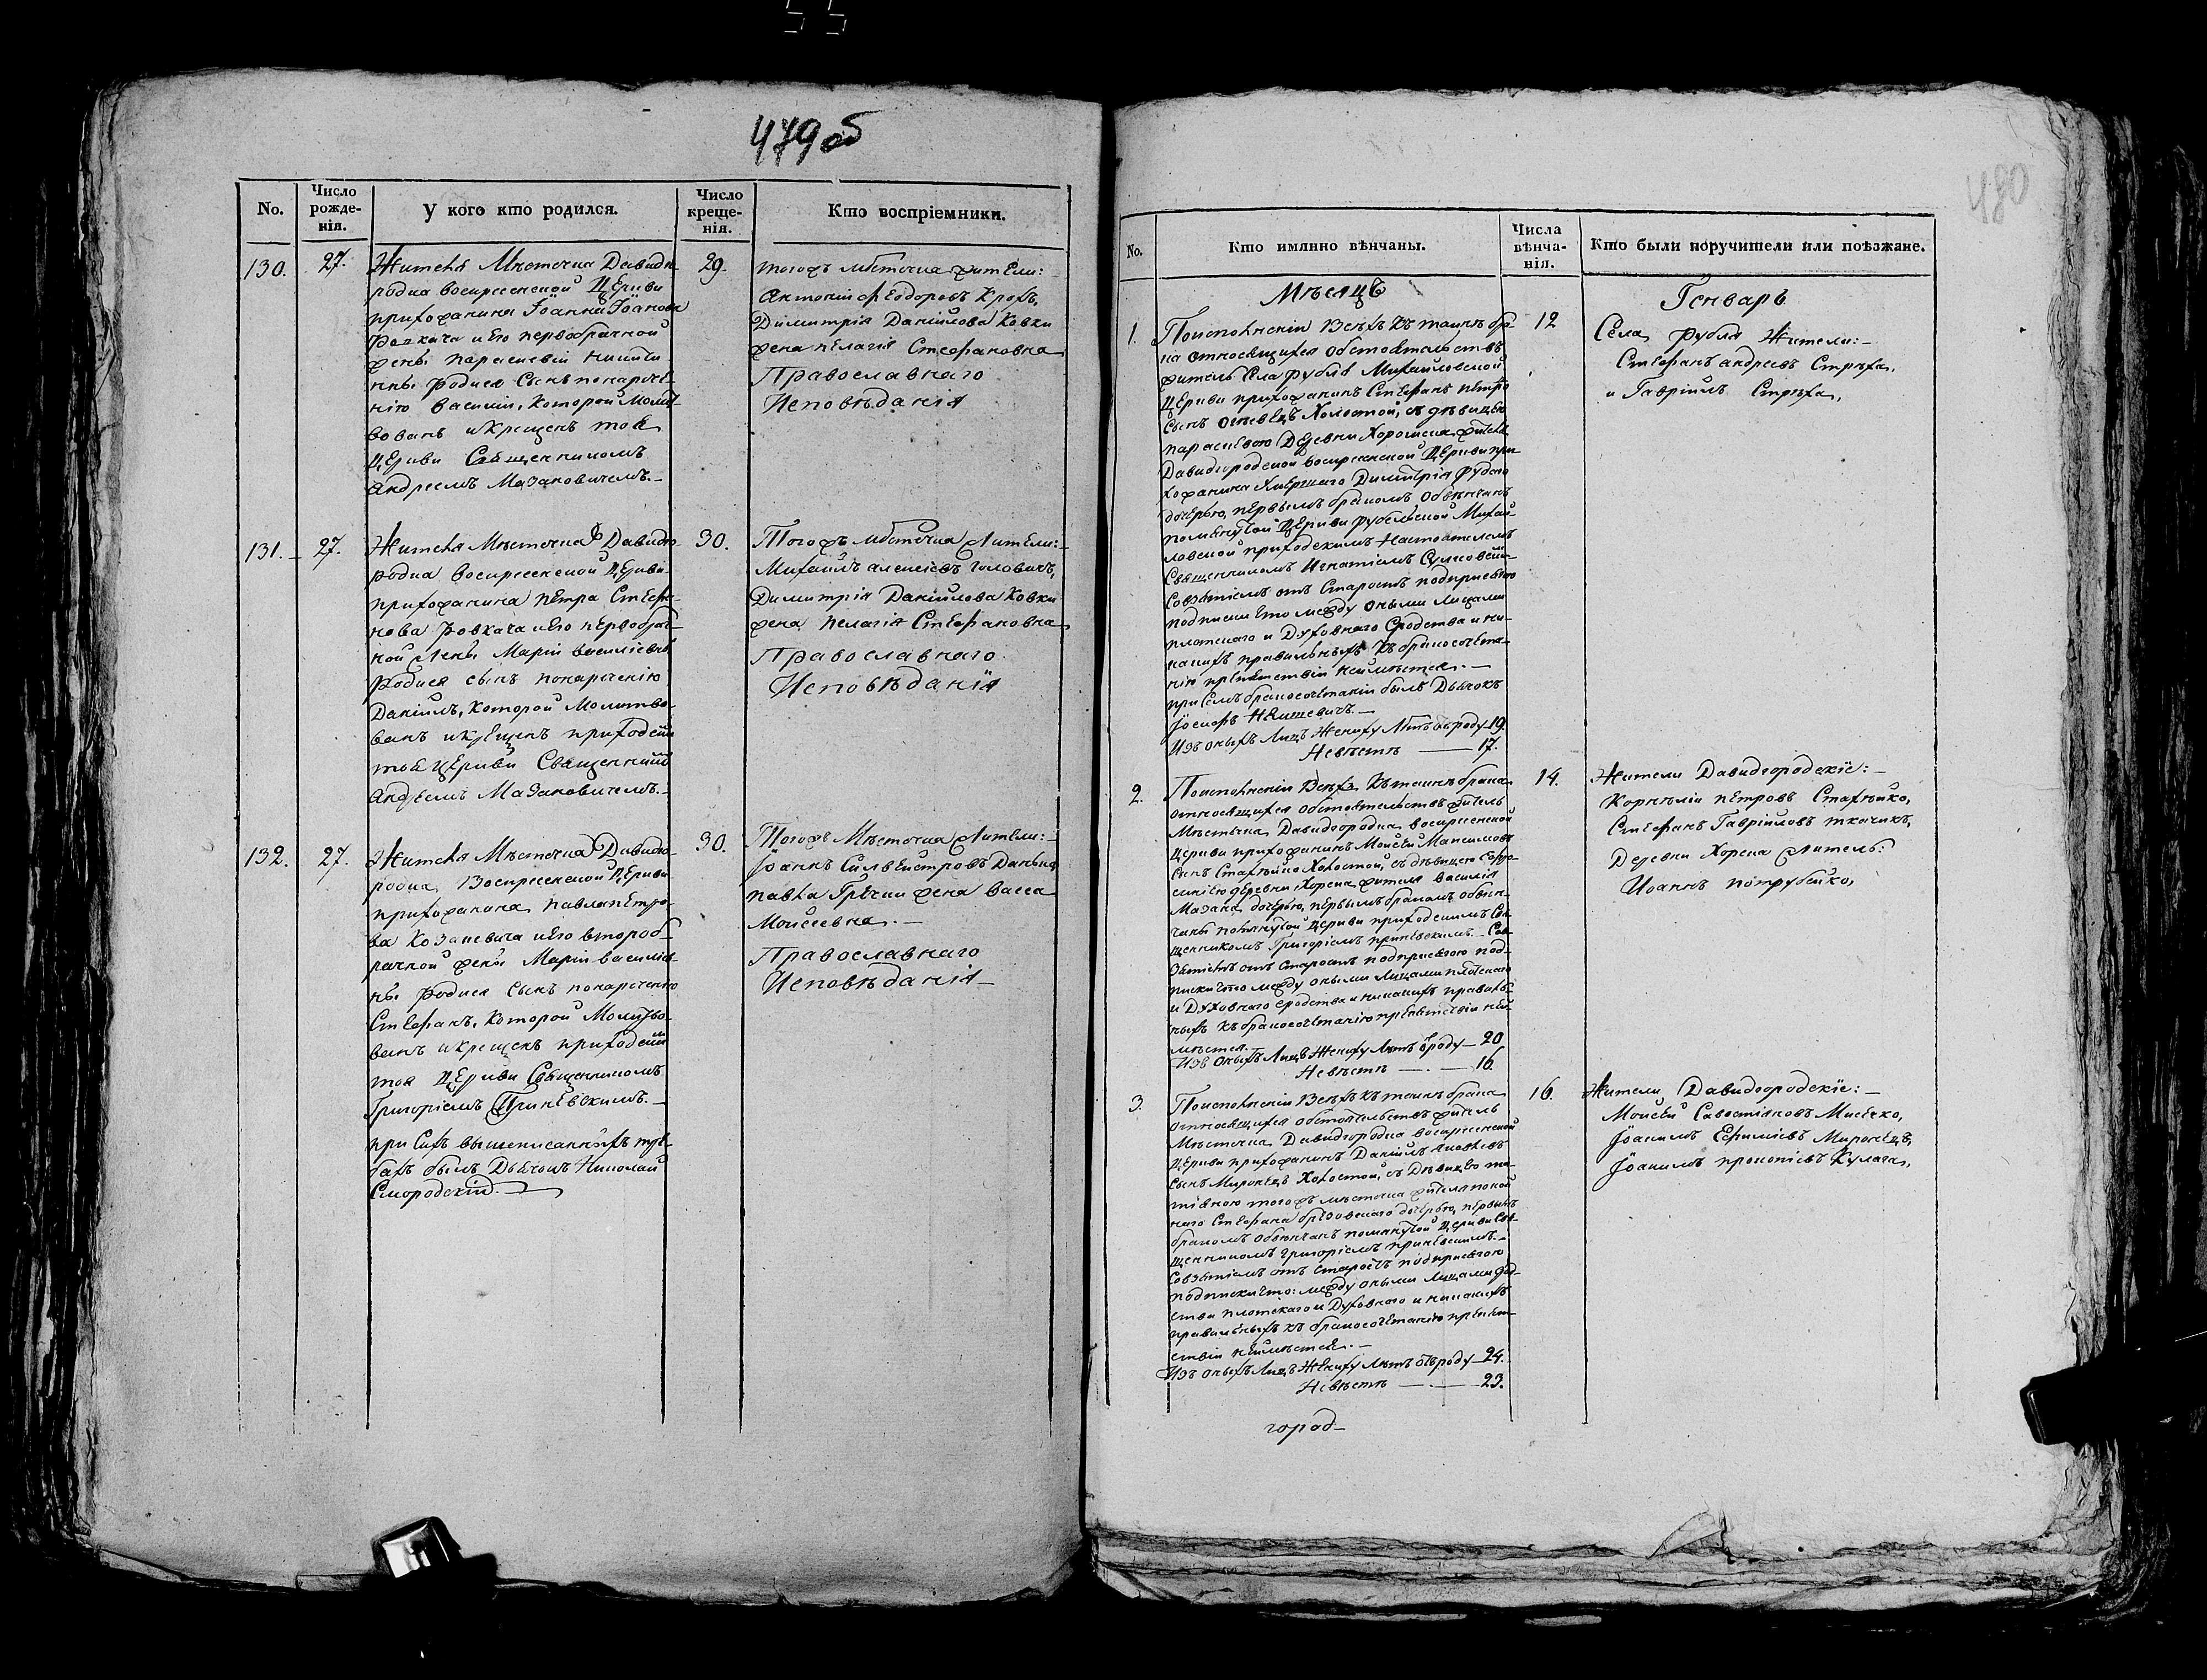 479 об
No.
Число рожде-нія.
У кого кто родился.
Число креще-нія.
Кто воспріемники.
130.
27.
Жителя Мѣстечка Давидго
родка Воскресенской Церкви
прихожанина Іоанна Іоанова
и его первобрачной
жены Параскевіи Никити
ны родися Сынъ по нарече
нію Василій, которой Молит
вованъ и Крещенъ тоя
Церкви Священникомъ
Андреемъ Мазановичемъ.
29.
Тогожъ мѣстечка жители:
Антоній Феодоровъ
Димитрія Даніилова Ковки
жена Пелагія Стефановна
Православнаго
Исповѣданія
131.
27.
Жителя Мѣстечка Давидго
родка Воскресенской Церкви
прихожанина Петра Стефа
нова и его первобрач
ной жены Маріи Василіевы
родися сынъ по нареченію
Даніилъ, которой Молитво
ванъ и крещенъ приходскимъ
тоя Церкви Священникомъ
Андреемъ Мазановичемъ.
30.
Тогожъ мѣстечка Жители:
Михаилъ Алексіевъ Головачъ,
Димитрія Даніилова Ковки
жена Пелагія Стефановна
Православнаго
Исповѣданія
132.
27.
Жителя Мѣстечка Давидго
родка Воскресенской Церкви
прихожанина Павла Петро
ва Козакевича и его второб
рачной жены Маріи Василіе
ны родися Сынъ по нареченію
Стефанъ, которой Молитво
ванъ и крещенъ приходскимъ
тоя Церкви Священникомъ
Григоріемъ Приневскимъ.
при Сихъ вышеписанныхъ тре
бахъ былъ Дьячокъ Николай
Смородскій.
30.
Тогожъ Мѣстечка Жители:
Іоаннъ Силвестровъ
Павла Гречки жена Васса
Моисеевна.
Православнаго
Исповѣданія
480
No.
Кто имянно вѣнчаны.
Числа вѣнча-нія.
Кто были поручители или поѣзжане.
Мѣсяцъ
Генварь
1.
По исполненіи Всѣхъ Къ таинъ бра
ка относящихся обстоятельствъ
житель Села Рубля Михайловской
Церкви прихожанинъ Стефанъ Петро
Сынъ Холостой, съ дѣвицею
Параскевою Деревни Хоромска жителя
Давидгородской Воскресенской Церкви при
хожанина Умершаго Димитрія
дочерью, первымъ бракомъ Обвѣнчанъ
помянутой Церкви Рубельской Михай
ловской приходскимъ Настоятелемъ
Священникомъ Игнатіемъ
Совзятіемъ отъ Старостъ подприсягою
подписки что между оными лицами
плотскаго и Духовнаго Сродства и ни
какихъ правильныхъ къ бракосочета
нію препятствій неимѣется.
при Семъ бракосочетаніи былъ Дьячокъ
Іосифъ
Изъ оныхъ Лицъ Жениху Лѣтъ отъ роду 19.
Невѣстѣ — 17.
12
Села Рубля Жители:
Стефанъ Андреевъ Стрѣха,
и Гавріилъ Стрѣха,
2.
По исполненіи Всѣхъ Къ таинъ брака
относящихся обстоятельствъ житель
Мѣстечка Давидгородка Воскресенской
Церкви прихожанинъ Моисей Максимовъ
Сынъ Стахѣйко Холостой, съ дѣвицею Евфро
синіею деревни Хорска жителя Василія
Мазана дочерью, первымъ бракомъ обвѣн
чаны помянутой Церкви приходскимъ Свя
щенникомъ Григоріемъ Приневскимъ. Сов
зятіемъ отъ Старостъ подприсягою под
писки что между оными Лицами плотскаго
и Духовнаго сродства и никакихъ правиль
ныхъ къ бракосочетанію препятствій неи
мѣется.
Изъ оныхъ Лицъ Жениху Лѣтъ отъ роду — 20
Невѣстѣ — 16.
14.
Жители Давидгородскіе:
Корнилій Петровъ Стахѣйко,
Стефанъ Гавріиловъ Ткачикъ,
Деревни Хорска Житель:
Иоаннъ Потрубейко,
3.
По исполненіи Всѣхъ къ таинъ брака
относящихся обстоятельствъ житель
Мѣстечка Давидгородка Воскресенской
Церкви прихожанинъ Даніилъ Яковлевъ
Сынъ Миронецъ Холостой, съ Дѣвицею Та
тіаною тогожъ мѣстечка жителя покой
наго Стефана Брезовскаго дочерью, первымъ
бракомъ обвѣнчанъ помянутой Церкви Свя
щенникомъ Григоріемъ Приневскимъ.
Совзятіемъ отъ Старостъ подприсягою
подписки что: между оными Лицами род
ства плотскаго и Духовнаго и никакихъ
правильныхъ къ бракосочетанію препят
ствій неимѣется.
Изъ оныхъ Лицъ Жениху Лѣтъ отъ роду 24.
Невѣстѣ — 23.
16.
Жители Давидгородскіе:
Моисей Савостіяновъ
Іоакимъ Ефиміевъ Миронецъ,
Іоакимъ Прокопіевъ Кулага,
город